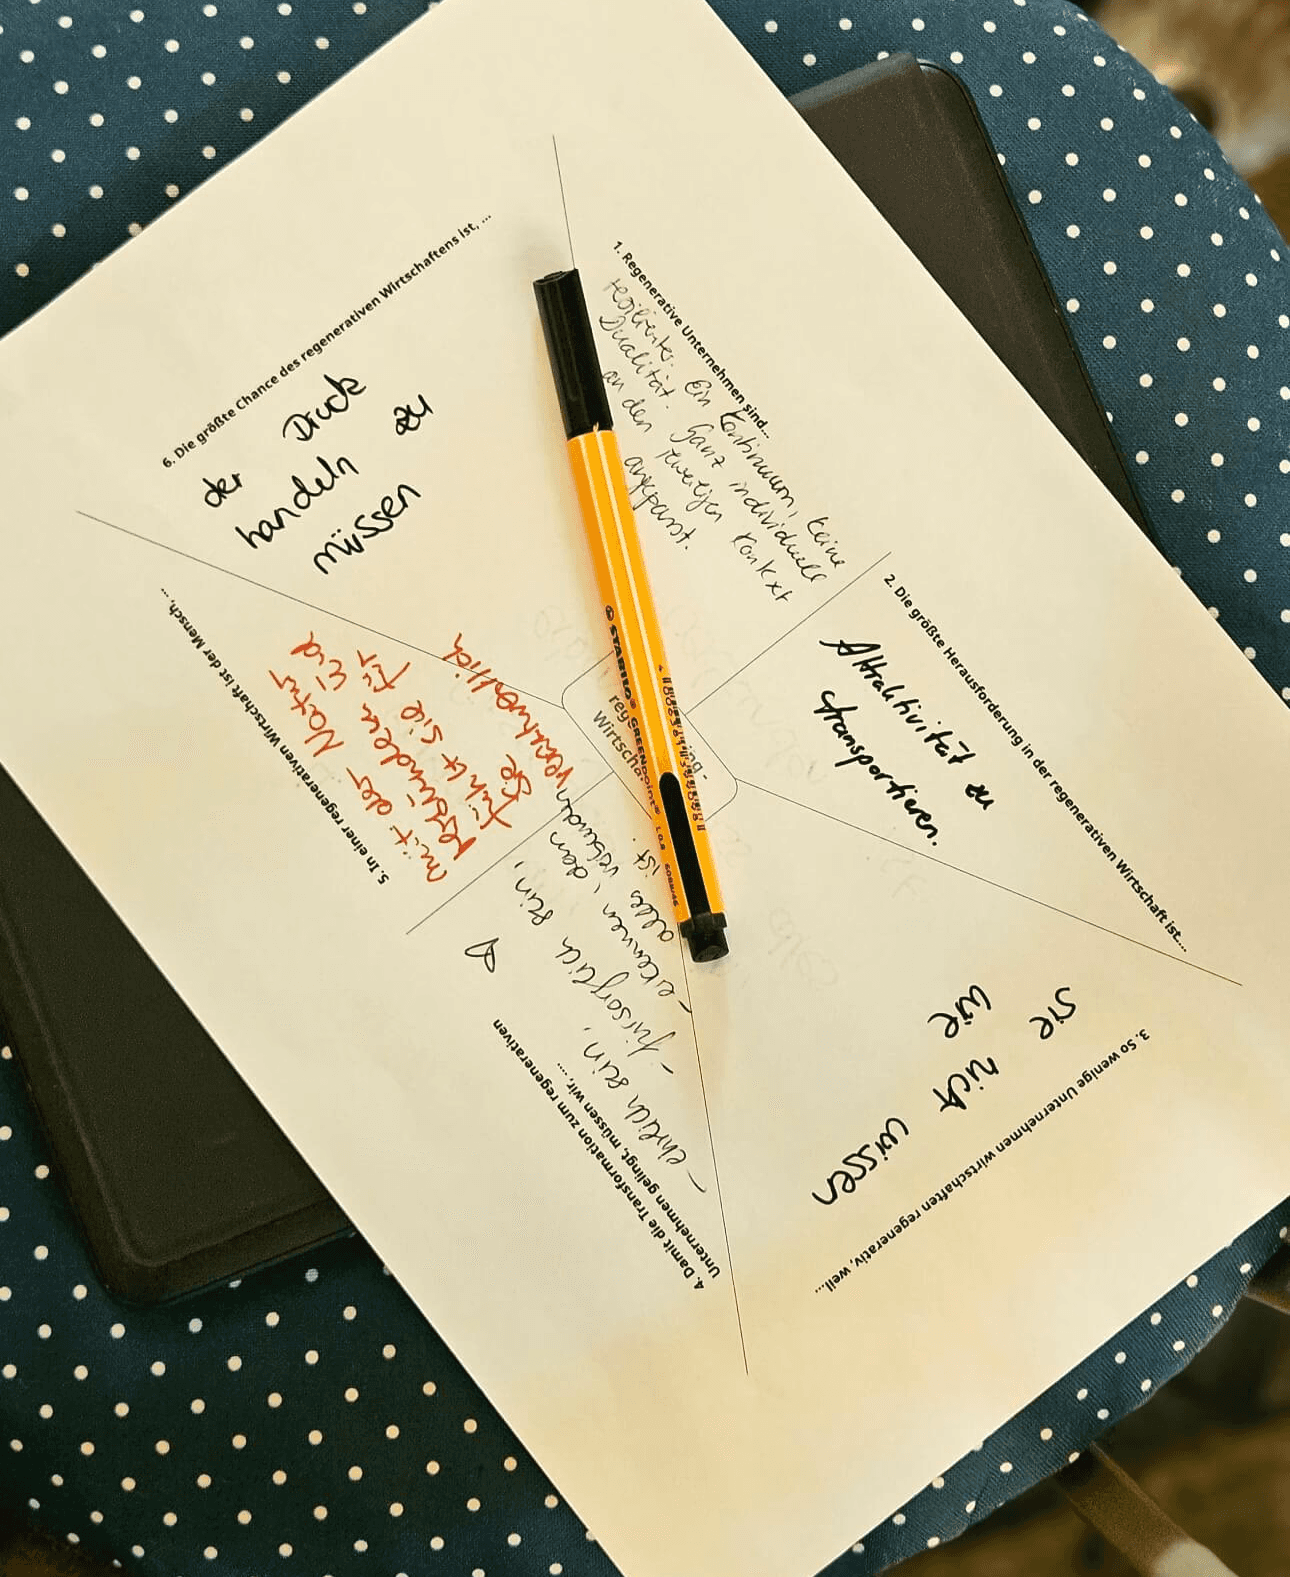 1. Regenerative Unternehmen sind...
resilienter. Ein Kontinuum, keine
Dualität. Ganz individuell
an den jeweiligen Kontext
angepasst.
2. Die größte Herausforderung in der regenerativen Wirtschaft ist...
Attraktivität zu
transportieren.
3. So wenige Unternehmen wirtschaften regenerativ, weil...
sie nich wissen
wie
4. Damit die Transformation zum regenerativen
Unternehmen gelingt, müssen wir, ...
- ehrlich sein,
- fürsorglich sein,
- erkennen, dass
alles verbunden
ist.
5. In einer regenerativen Wirtschaft ist der Mensch, ...
mit der Natur
verbunden und
fühlt sie für
sie verantwortlich
6. Die größte Chance des regenerativen Wirtschaftens ist, ...
der Druck
handeln zu
müssen
reg
Wirtscha
ing-
STABILO® GREENpoint® 0.8 6088/46